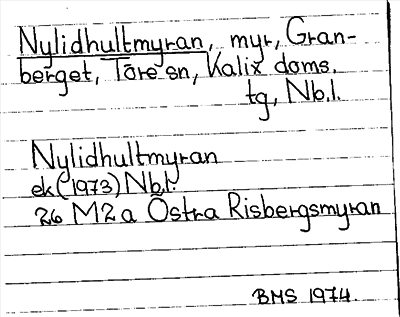 Nylidhultmyran, myr, Gran-
berget, Töre sn, Kalix doms.
tg, Nb.l.
Nylidhultmyran
ek (1973) Nbl.
26 M2a Östra Risbergsmyran
BMS 1974.